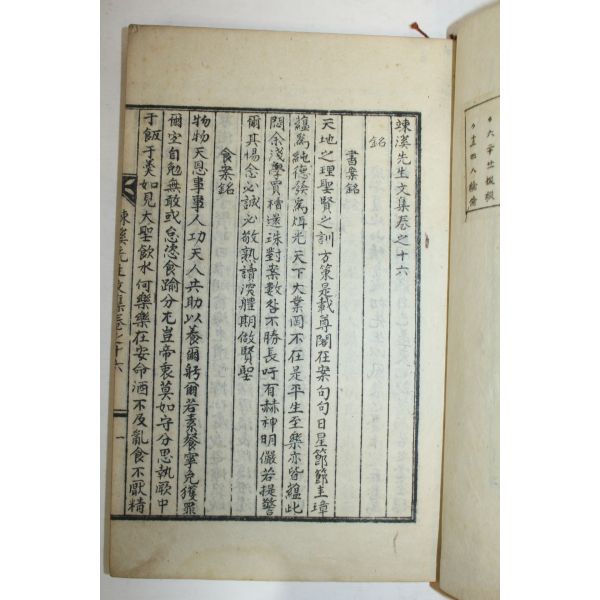 竦溪先生文集卷之十六
銘
書案銘
天地之理聖賢之訓方策是載尊閣在案句句日星節節圭璋
蘊爲純德發爲煇光天下大業罔不在是平生至樂亦皆蘊此
悶余淺學買櫝還珠對案數咎不勝長吁有赫神明儼若提警
爾其惕念必誠必敬熟讀深體期做賢聖
食案銘
物物天恩事事人功天人共助以養爾躬爾若素餐寧免獲罪
爾空自勉無敢或怠恣食踰分尤豈帝衷莫如守分思執厥中
于飯于羹如見大聖飮水何樂樂在安命酒不及亂食不厭精
竦溪先生文集卷之十六 一